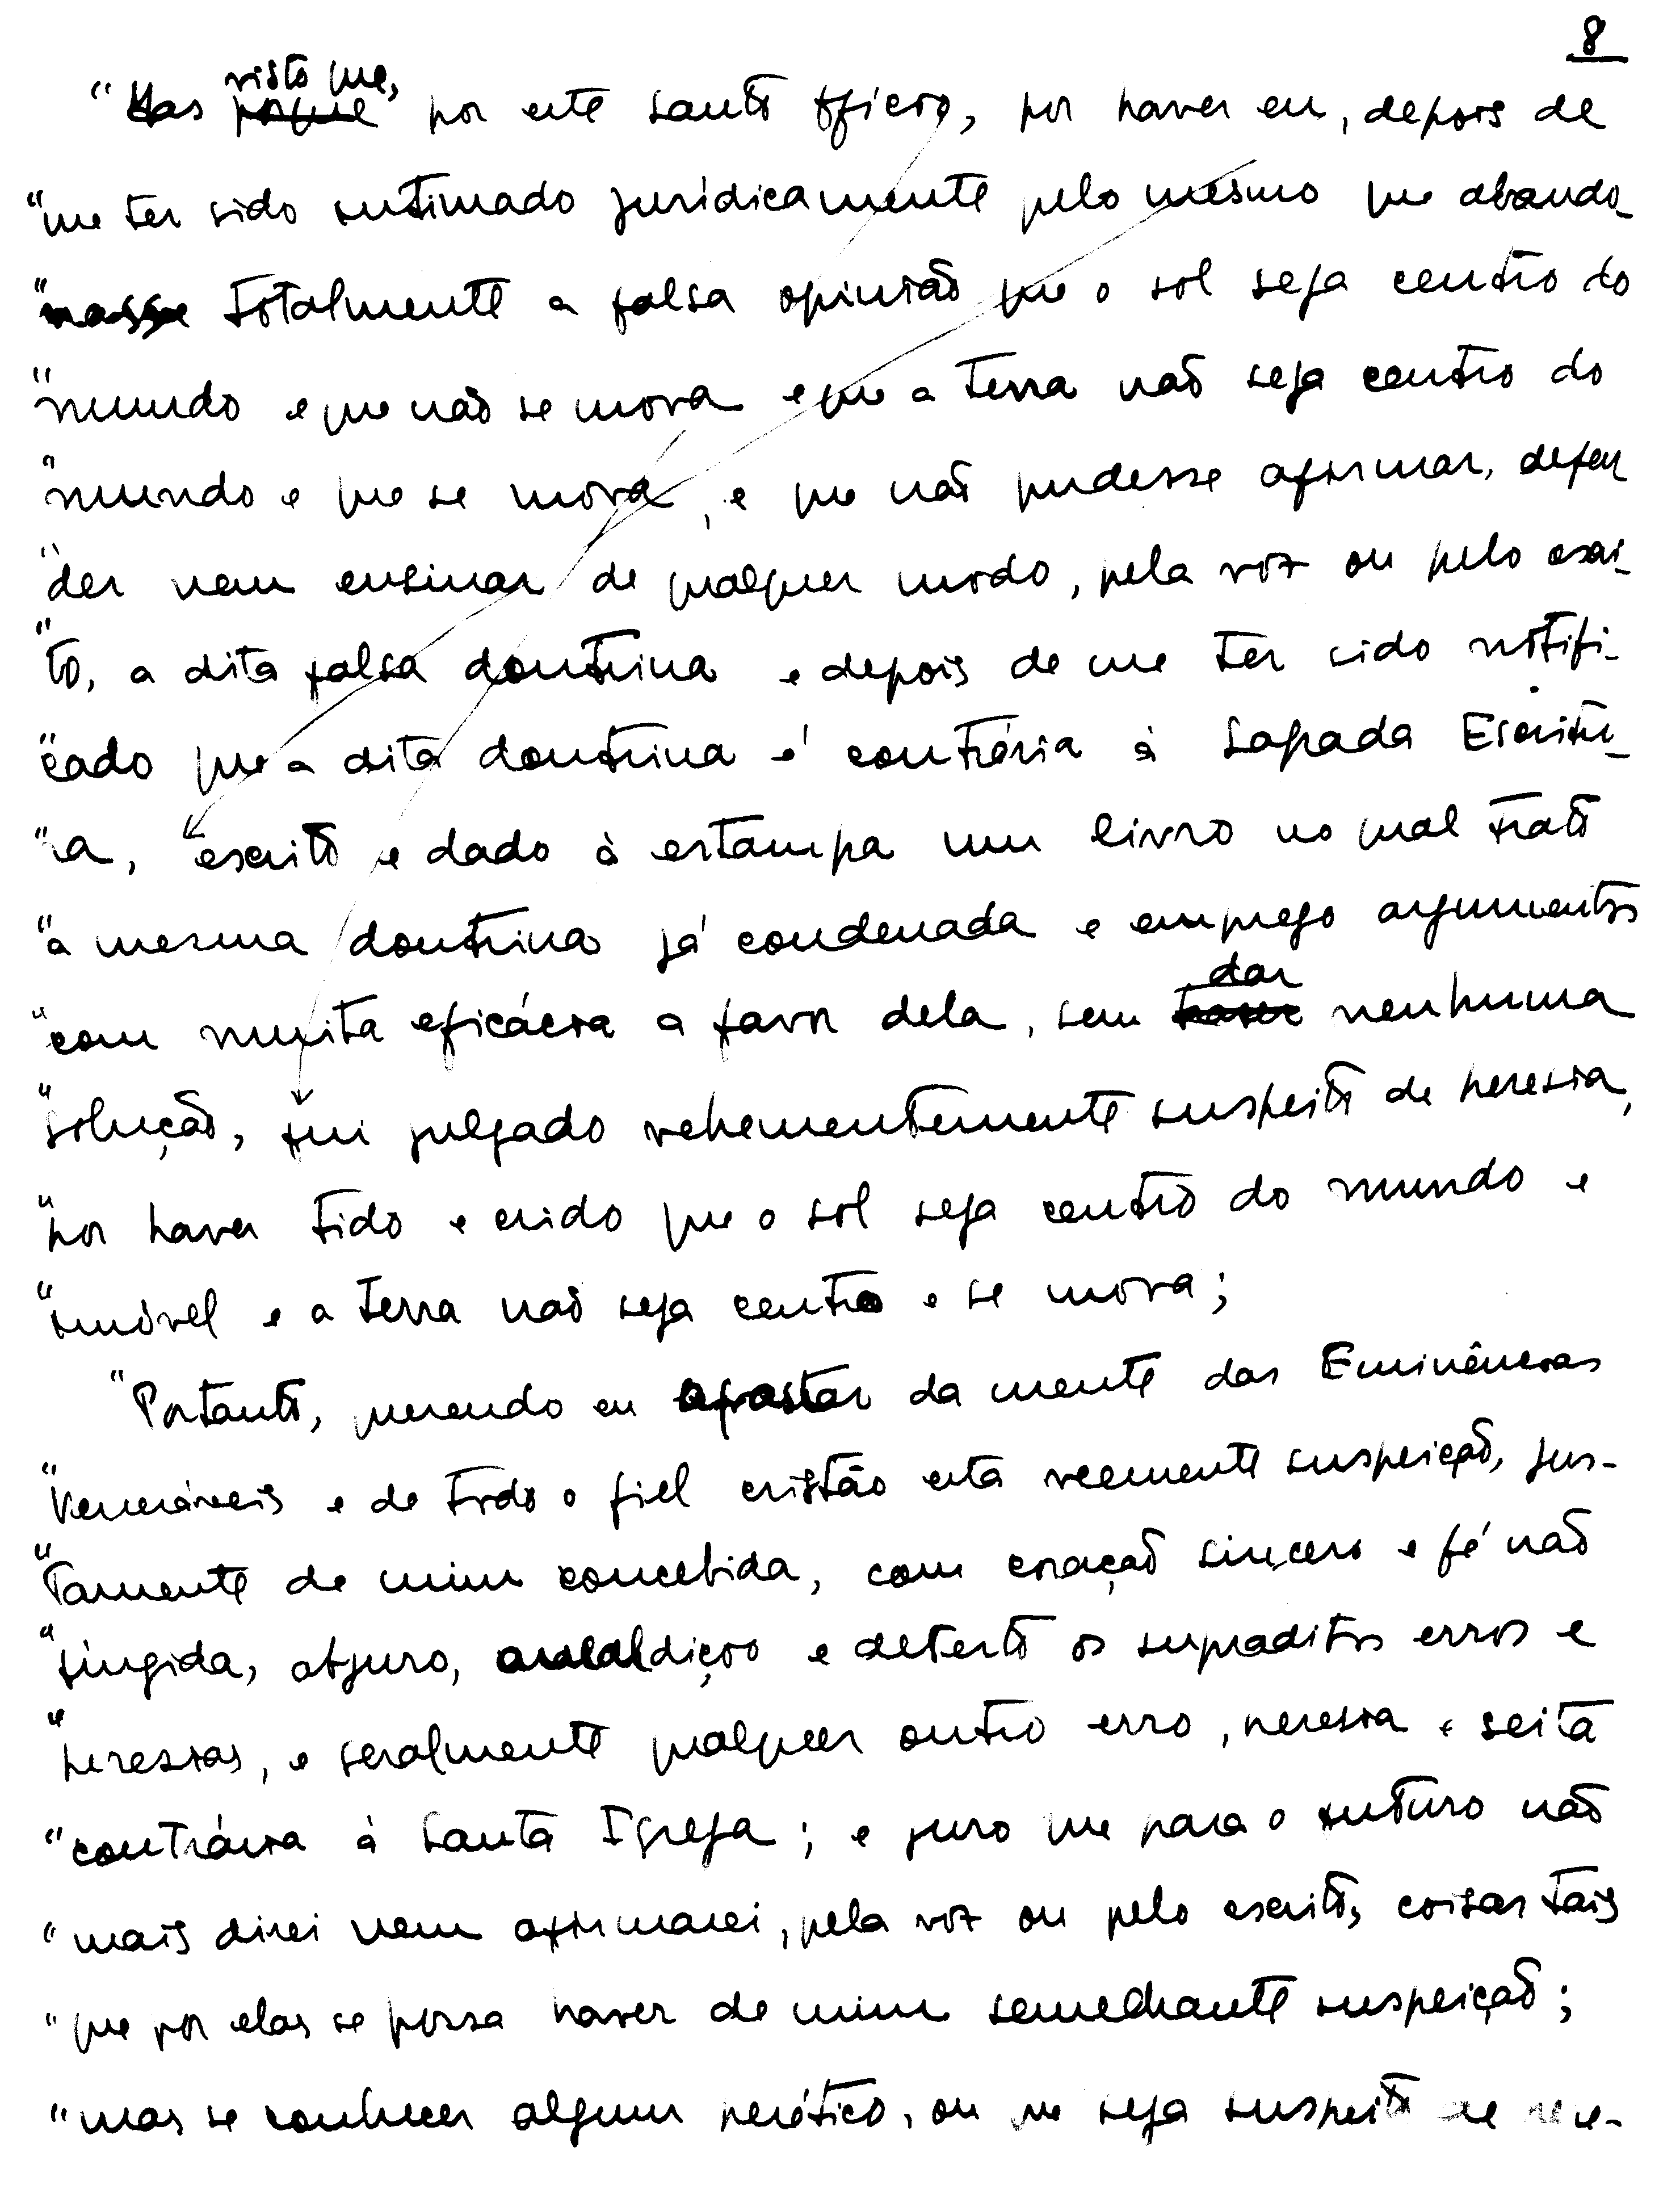 8
visto que,
"Mas porque por este santo ofício, por haver eu, depois de
"me ter sido intimado jurídicamente pelo mesmo que abando_
"nasse totalmente a falsa opinião que o sol seja centro do
"mundo e que não se mova e que a terra não seja centro do
"mundo e que se mova, e que não pudesse afirmar, defen
"der nem ensinar de qualquer modo, pela voz ou pelo escri_
"to, a dita falsa doutrina e depois de me ter sido notifi-
"cado que a dita doutrina é contrária à Sagrada Escritu_
"ra, escrito e dado à estampa um livro no qual trato
"a mesma doutrina já condenada e emprego argumentos
dar
"com muita eficácia a favor dela, sem trazer nenhuma
"solução, fui julgado vehementemente suspeito de heresia,
"por haver tido e crido que o sol seja centro do mundo e
"imóvel e a terra não seja centro e se mova;
"Portanto, querendo eu afastar da mente das Eminências
"Veneráveis e de todo o fiel cristão esta veemente suspeição, jus-
"tamente de mim concebida, com coração sincero e fé não
"fingida, abjuro, amaldiçoo e detesto os supraditos erros e
"heresias, e geralmente qualquer outro erro, heresia e seita
"contrária à Santa Igreja; e juro que para o futuro não
"mais direi nem afirmarei, pela voz ou pelo escrito, coisas tais
"que por elas se possa haver de mim semelhante suspeição;
"mas se conhecer algum herético, ou que seja suspeito de here-